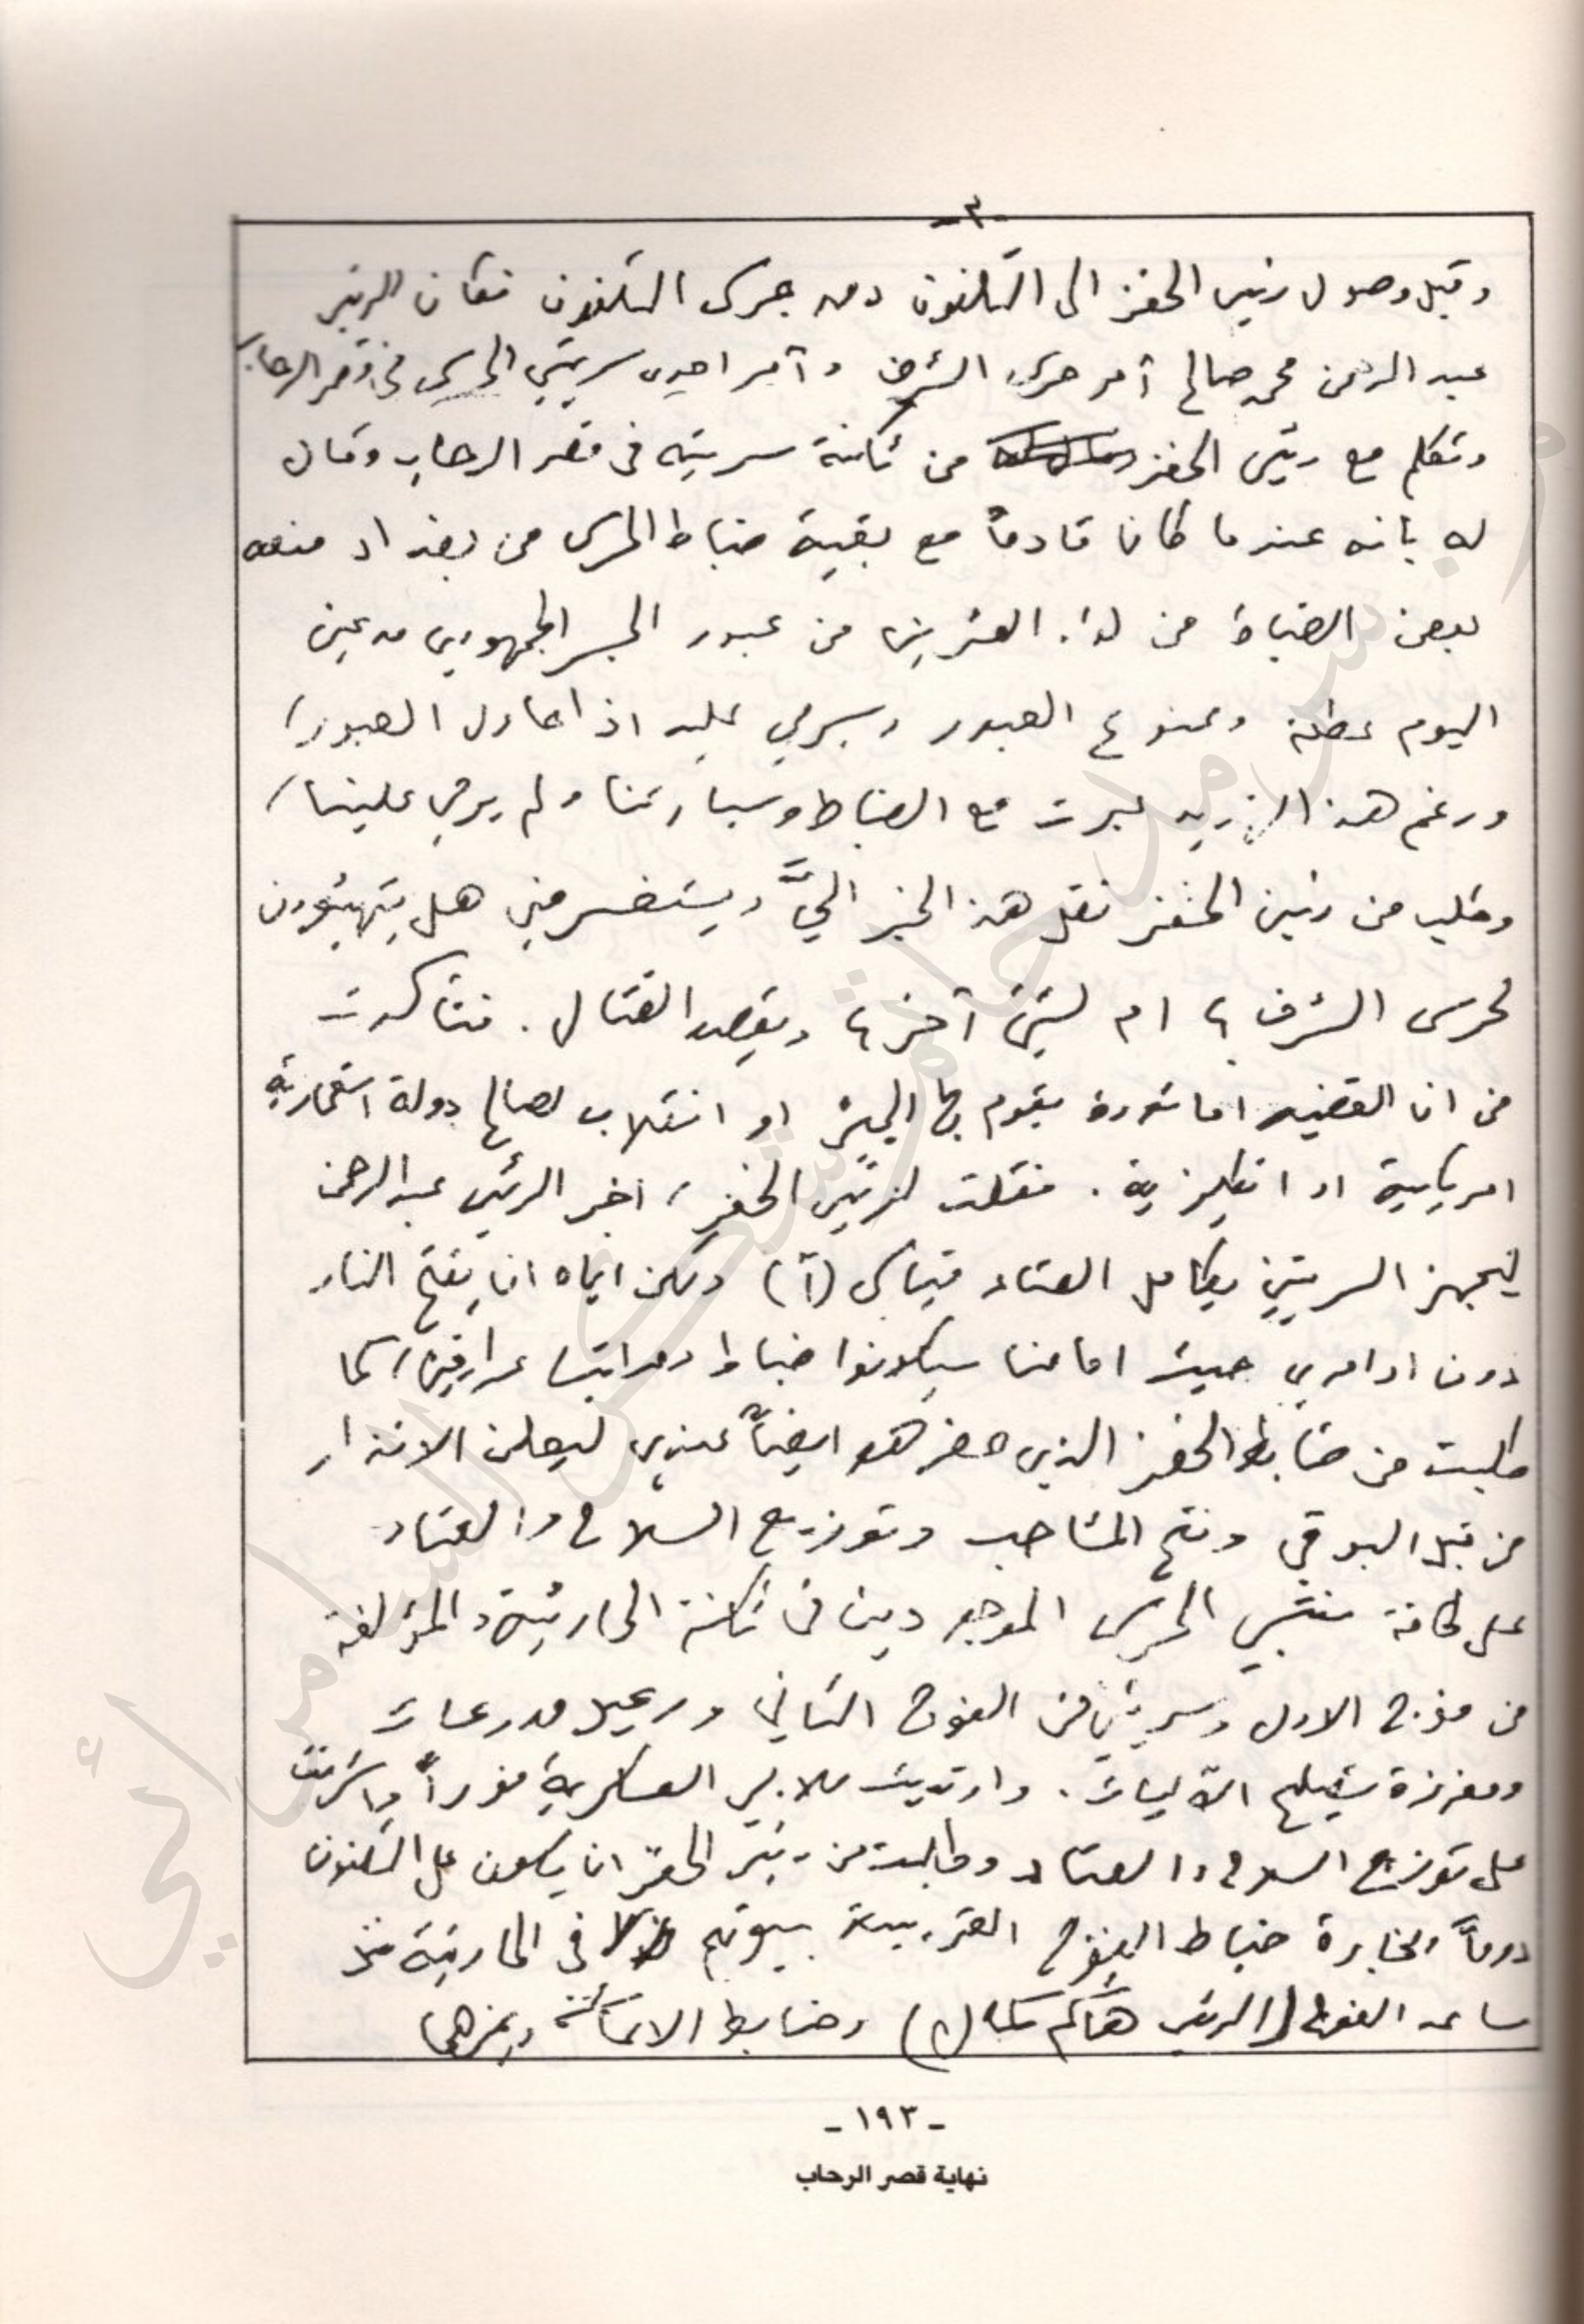 -٣-
وقبل وصول رئيس الخفر الى التلفون دق جرس التلفون فكان الرئيس
عبد الرحمن محمد صالح آمر حرس الشرف وآمر احدى سريتي الحرس في قصر الرحاب
وتكلم مع رئيس الخفر من ثكنة سريته في قصر الرحاب وقال
له بانه عندما كان قادماً مع بقية ضباط الحرس من بغداد منعه
بعض الضباط من لواء العشرين من عبور الجسر الجمهوري مدعين
اليوم عطلة وممنوع العبور وسيرمي عليه اذا حاول العبور/
ورغم هذا عبرت مع الضباط وسيارتنا ولم يرمي علينا/
وطلب من رئيس الخفر نقل هذا الخبر اليَّ ويستفسر مني هل يتهيئون
لحرس الشرف ؟ ام لشيئ آخر ؟ ويقصد القتال . فتأكدت
من ان القضيه اما ثورة يقوم بها الجيش او انقلاب لصالح دولة استعمارية
امريكية او انكليزية . فقلت لرئيس الخفر / اخبر الرئيس عبد الرحمن
ليجهز السريتين بكامل العتاد قياس (آ) ولكن اياه ان يفتح النار
دون اوامري حيث امامنا سيكونوا ضباط ومراتب عراقيين / كما
طلبت من ضابط الخفر الذي حضر هو ايضاً عندي ليعلن الانذار
من قبل البوقي وفتح المشاجب وتوزيع السلاح والعتاد
على كافة منتسبي الحرس الموجودين في ثكنة الحارثية والمؤلفة
من فوج الاول وسريتين من الفوج الثاني ورعيل مدرعات
ومفرزة تصليح الآليات . وارتديت ملابسي العسكرية فوراً واشرفت
على توزيع السلاح والعتاد وطلبت من رئيس الخفر ان يكون على التلفون
دوماً لمخابرة ضباط الفوج القريبة بيوتهم في الحارثية مثل
ساعد الفوج (الرئيس هاكم كمال) وضابط الاعاشة وغيرهما
- ١٩٣ -
نهاية قصر الرحاب